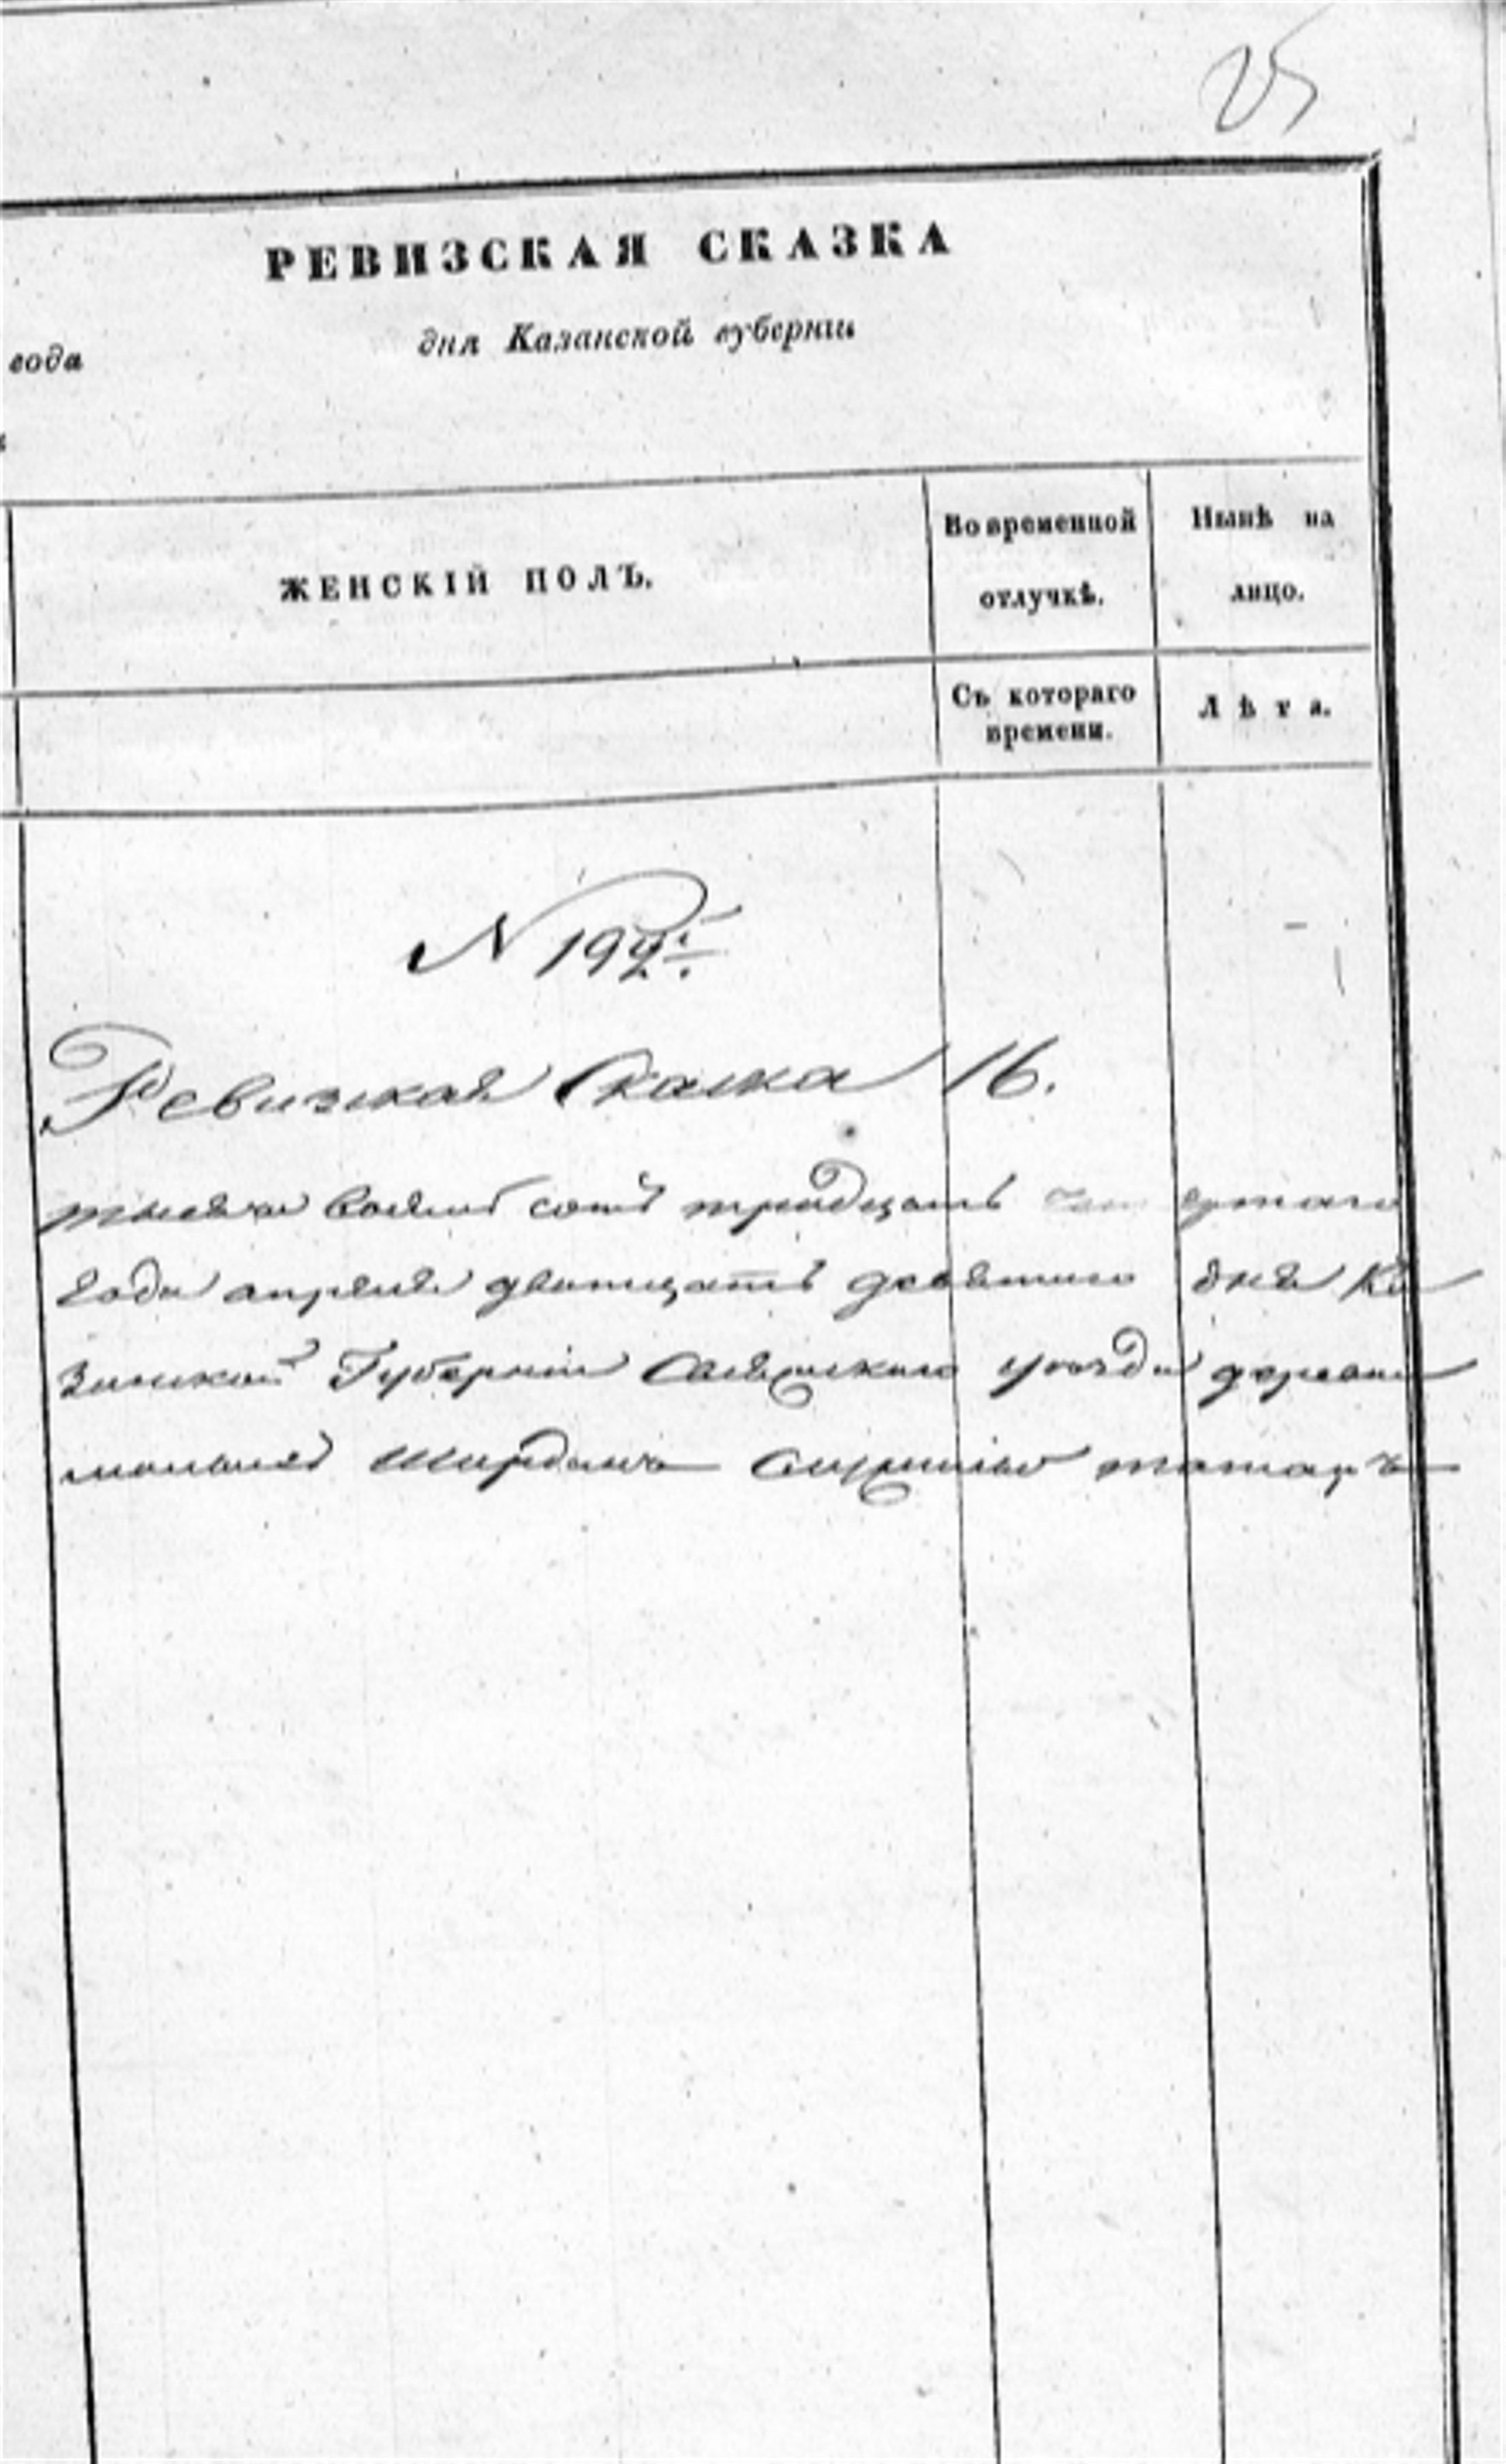 25
РЕВИЗСКАЯ СКАЗКА
года
дня Казанской губерніи
ЖЕНСКІЙ ПОЛЪ.
Во временной
отлучкѣ.
Нынѣ на
лицо.
Съ котораго
времени.
Лѣта.
N 192
Ревизкая Скаска 16.
тысяча восемь сотъ тридцать четвертаго
года апреля дватцать девятого дня Ка
занской Губерніи Свияжскаго уезда деревни
Ширданъ татаръ